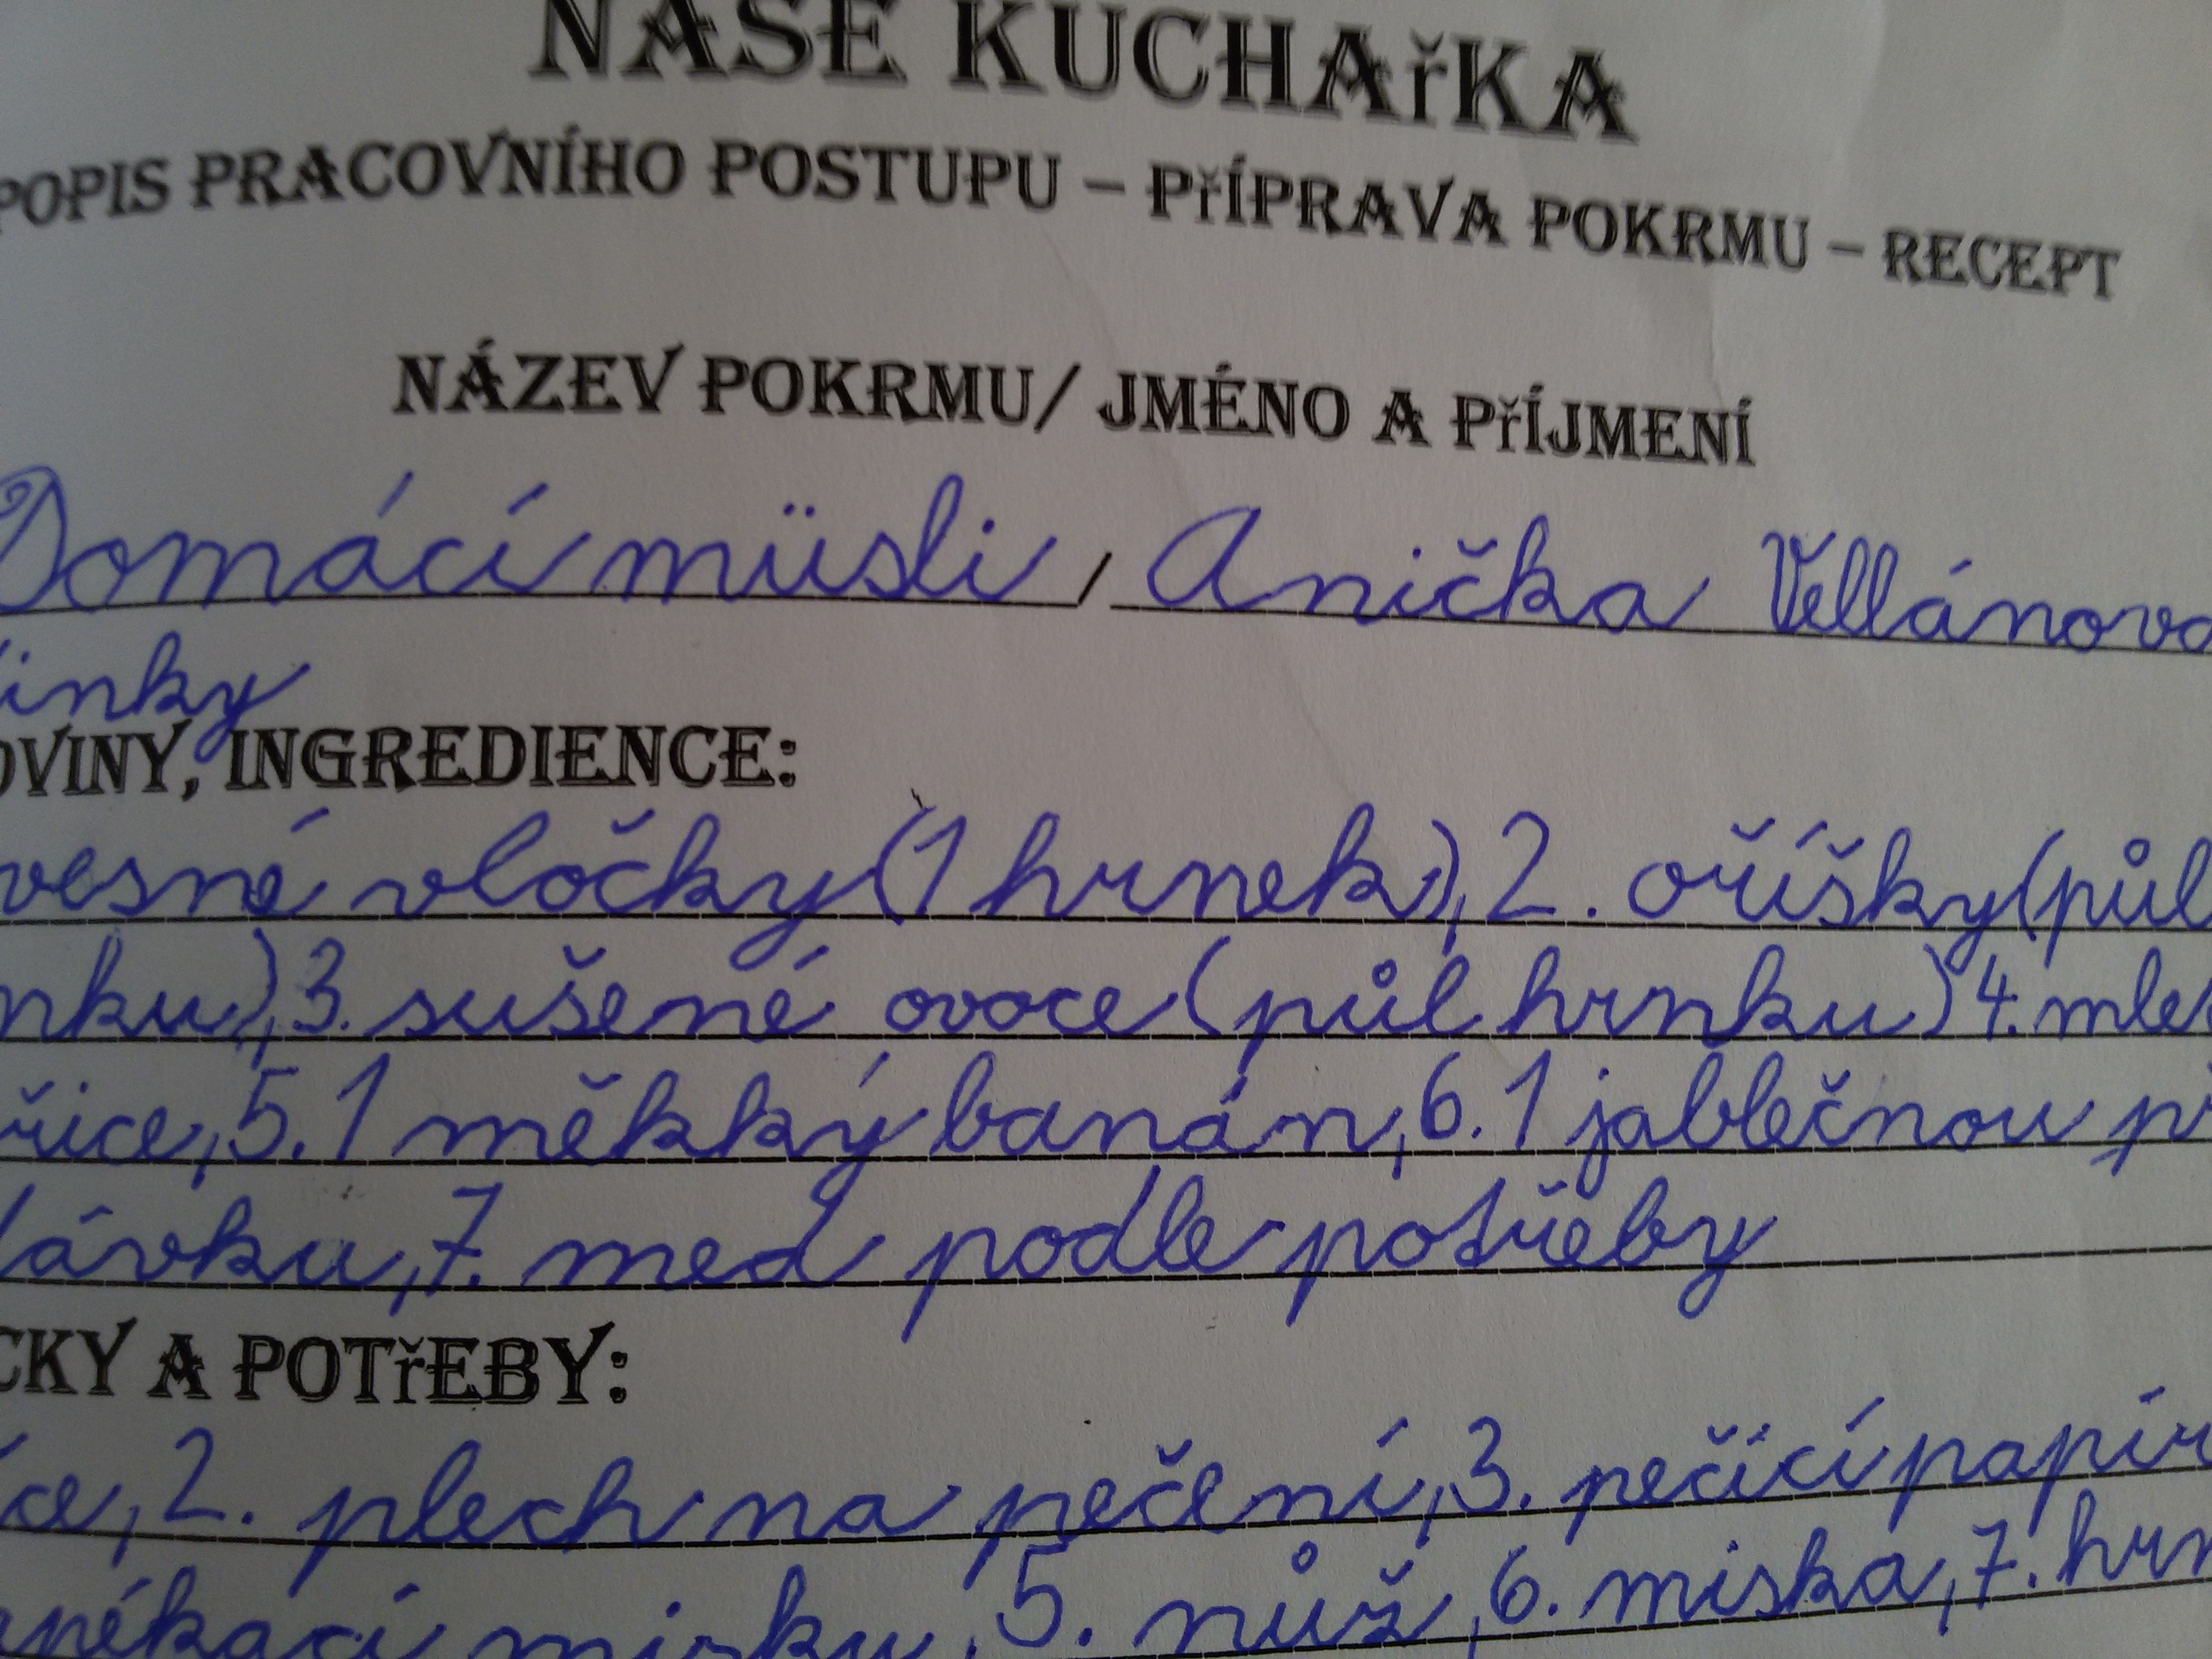 NAŠE KUCHAŘKA
POPIS PRACOVNÍHO POSTUPU – PŘÍPRAVA POKRMU – RECEPT
NÁZEV POKRMU/ JMÉNO A PŘÍJMENÍ
Domácí müsli / Anička Vellánova
inky
OVINY, INGREDIENCE:
vesné vločky (1 hrnek), 2. oříšky (půl
nku), 3. sušené ovoce (půl hrnku) 4. mlet
řice, 5. 1 měkký banán, 6. 1 jablečnou př
lávku, 7. med podle potřeby
CKY A POTŘEBY:
íce, 2. plech na pečení, 3. pečící papír
5. nůž, 6. miska, 7. hrn